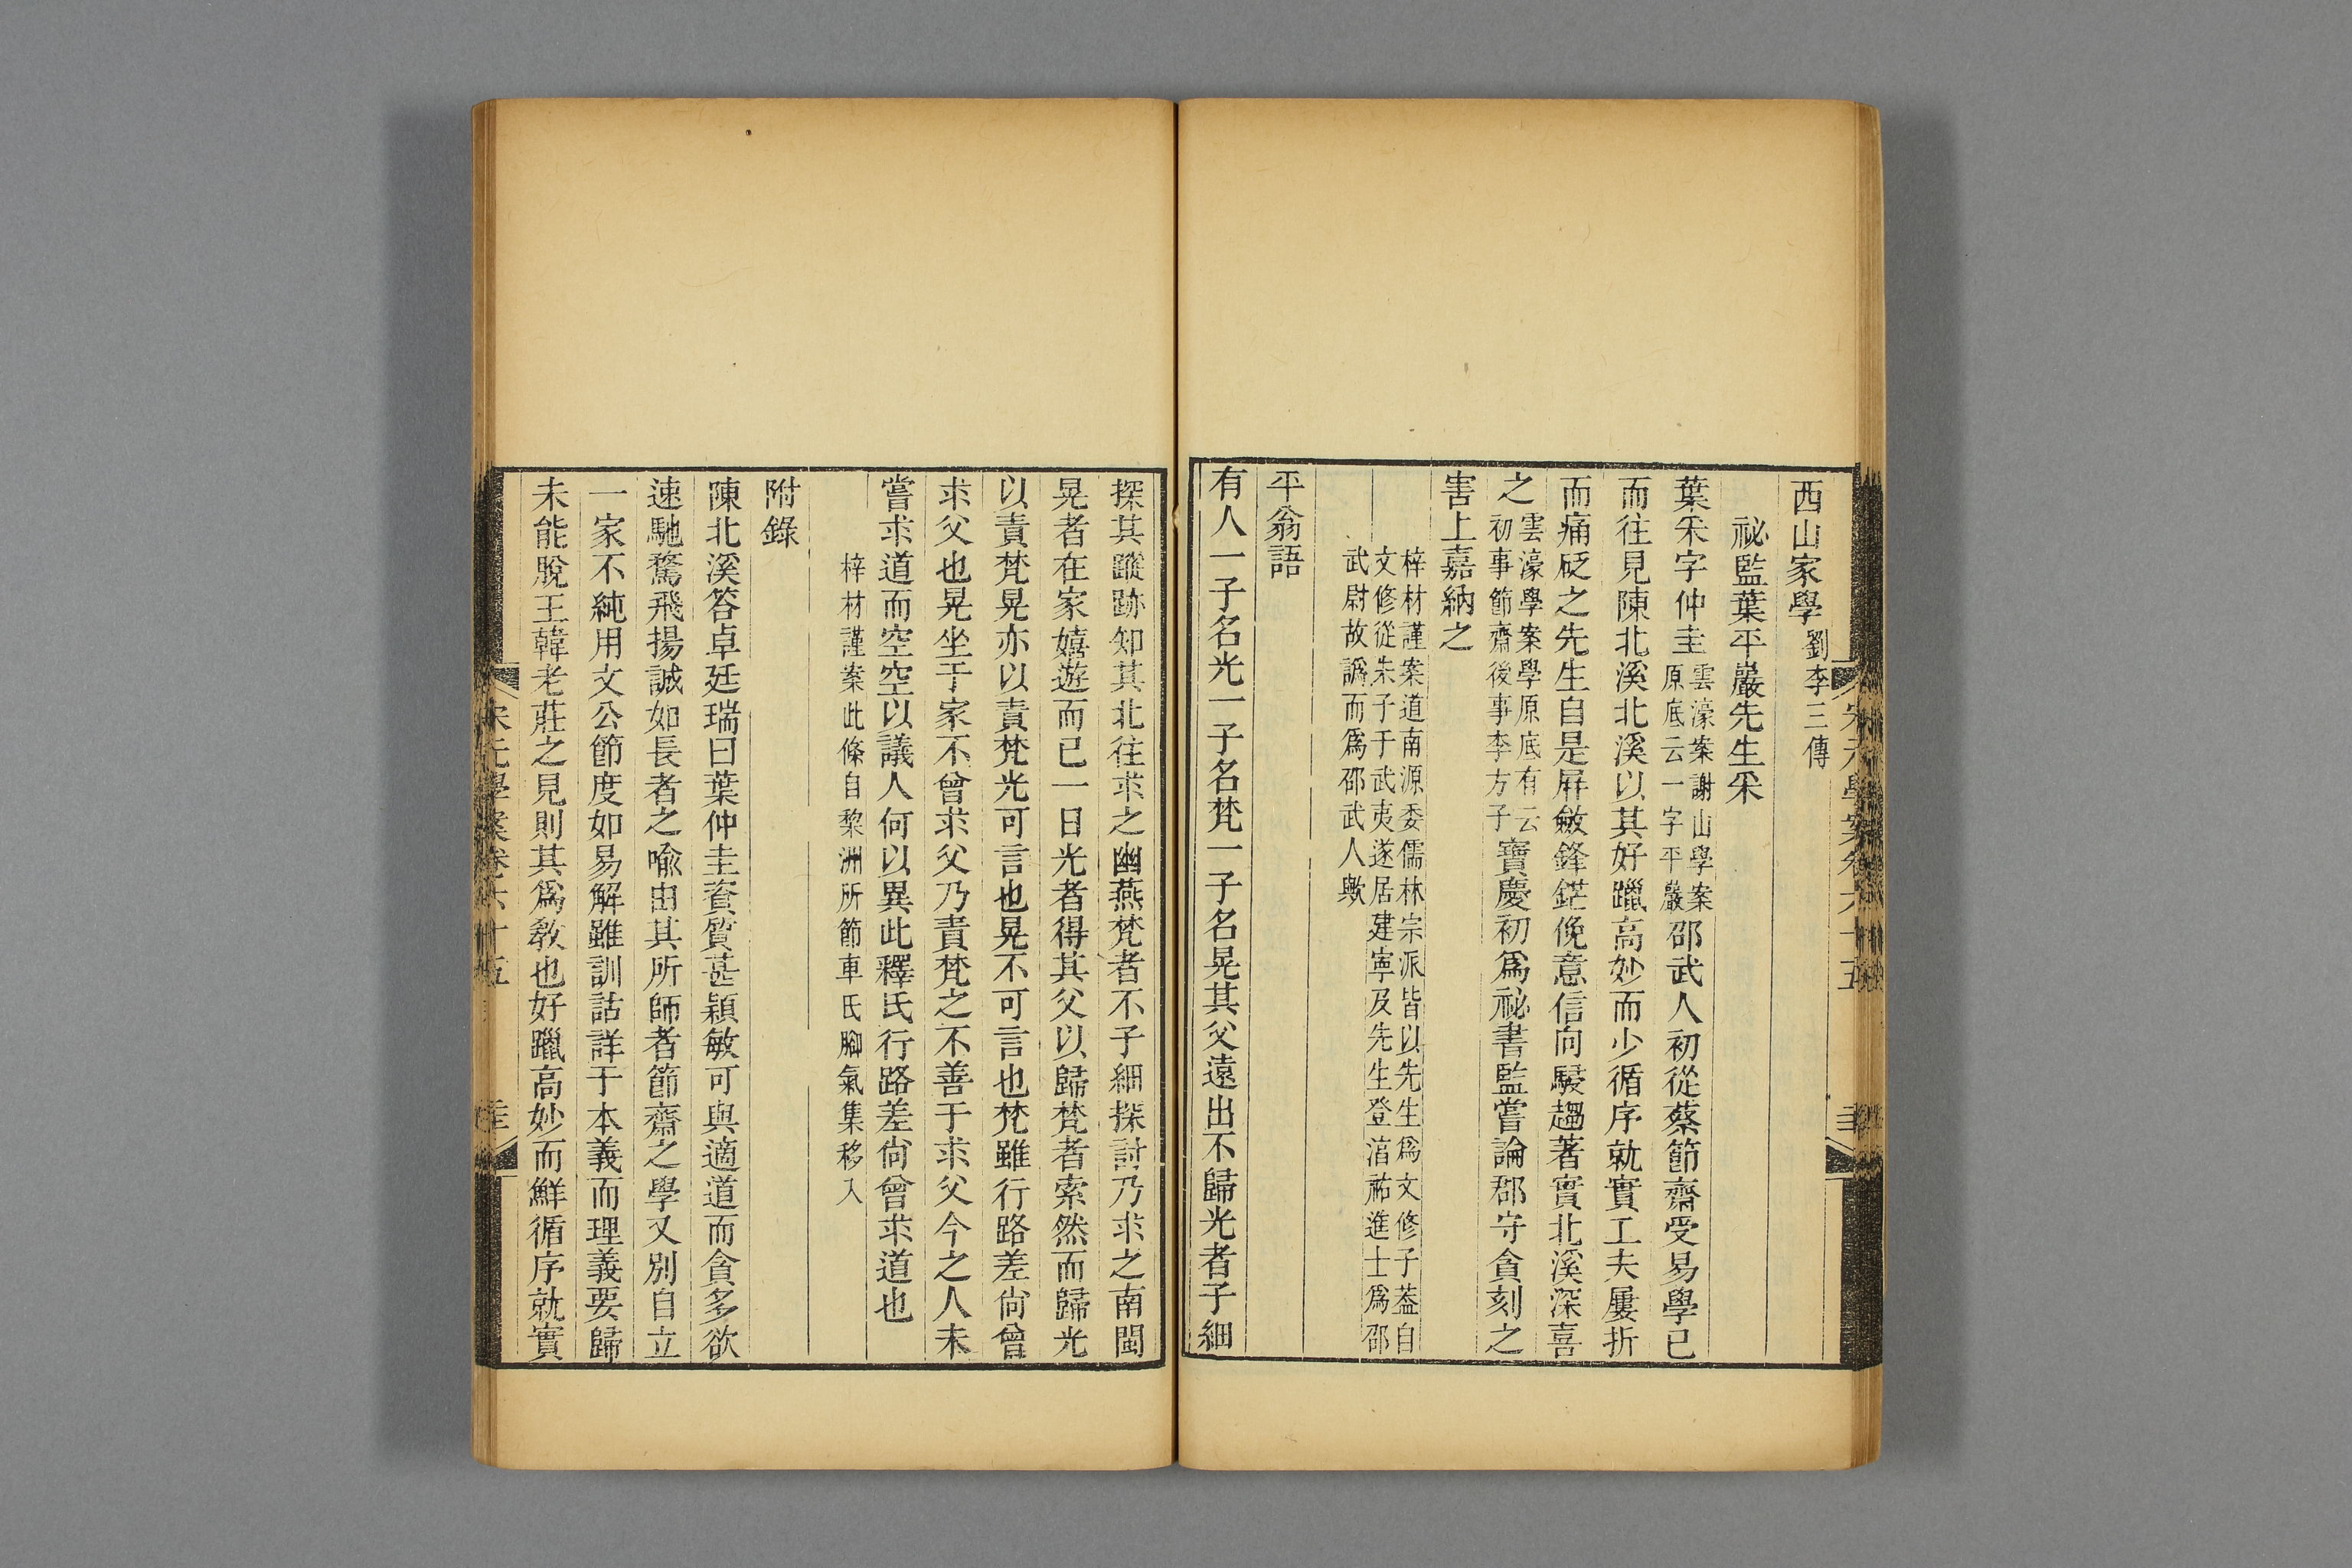 西山家學劉李三傳
祕監葉平巖先生采
葉采字仲圭雲濠案謝山學案原底云一字平巖邵武人初從蔡節齋受易學已
而往見陳北溪北溪以其好躐高妙而少循序就實工夫屢折
而痛砭之先生自是屏斂鋒鋩俛意信向駸趨著實北溪深喜
之雲濠學案學原底有云初事節齋後事李方子寶慶初爲祕書監嘗論郡守貪刻之
害上嘉納之
梓材謹案道南源委儒林宗派皆以先生爲文修子葢自
文修從朱子于武夷遂居建寧及先生登湻祐進士爲邵
武尉故譌而爲邵武人歟
平翁語
有人一子名光一子名梵一子名晃其父遠出不歸光者子細
探其蹤跡知其北往求之幽燕梵者不子細探討乃求之南閩
晃者在家嬉遊而已一日光者得其父以歸梵者索然而歸光
以責梵晃亦以責梵光可言也晃不可言也梵雖行路差尙曾
求父也晃坐于家不曾求父乃責梵之不善于求父今之人未
嘗求道而空空以議人何以異此釋氏行路差尙曾求道也
梓材謹案此條自黎洲所節車氏腳氣集移入
附錄
陳北溪答卓廷瑞曰葉仲圭資質甚穎敏可與適道而貪多欲
速馳騖飛揚誠如長者之喻由其所師者節齋之學又別自立
一家不純用文公節度如易解雖訓詁詳于本義而理義要歸
未能脫王韓老莊之見則其爲敎也好躐高妙而鮮循序就實
宋元學案卷六十五